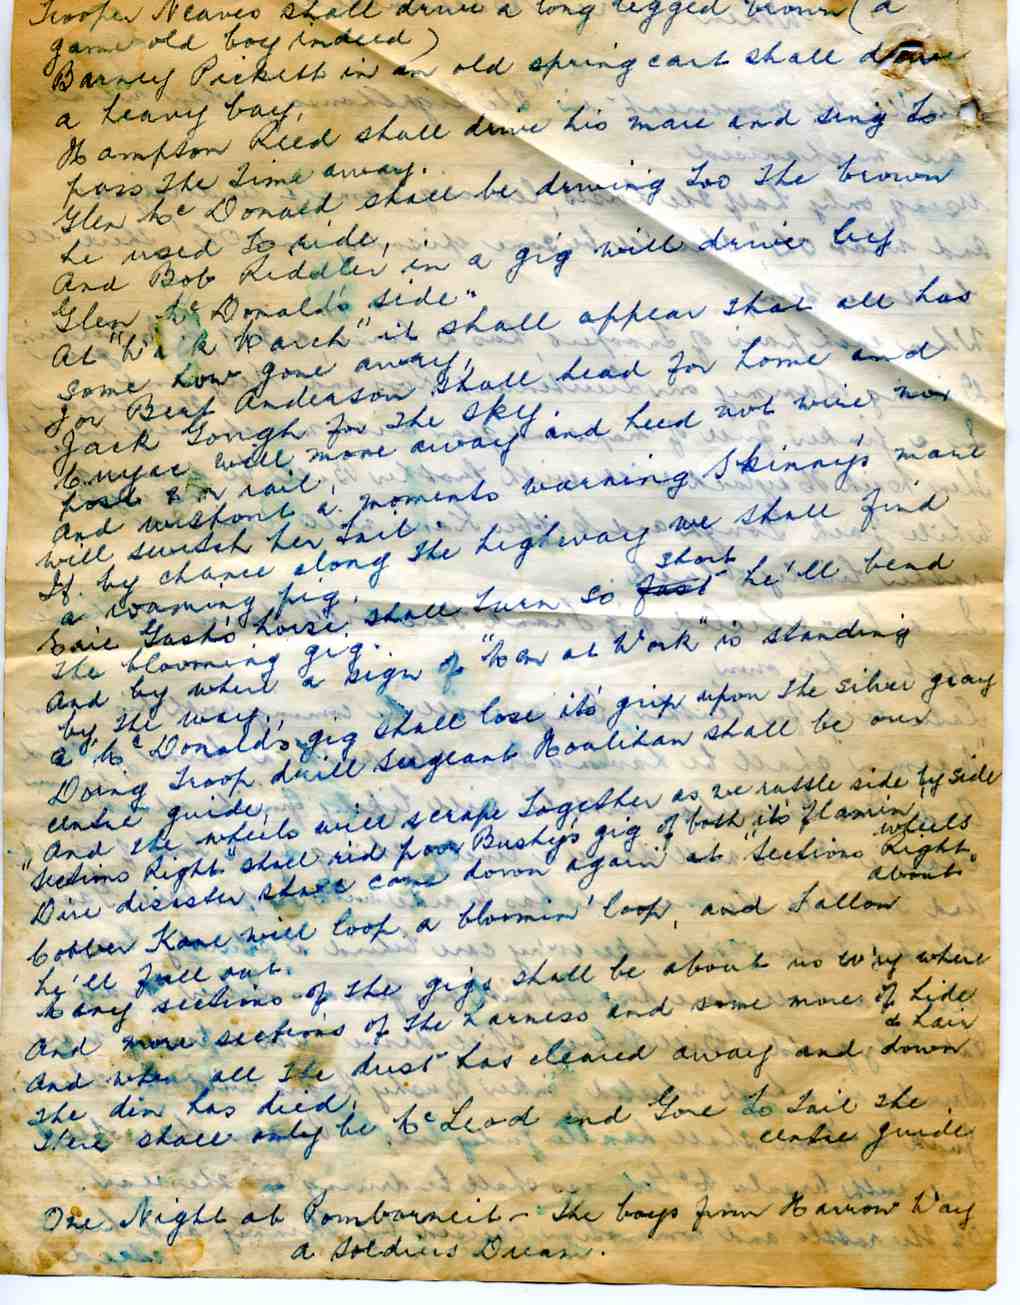 Trooper Neaves shall drive a long legged brown (a
game old boy indeed)
Barney Pickett in an old spring cart shall drive
a heavy bay,
Hampton Reed shall drive his mare and sing to
pass the time away.
Glen Mc Donald shall be driving too the brown
he used to ride,
And Bob Riddler in a gig will drive by
Glen Mc Donald's side"
At "Walk March" it shall appear that all has
some how gone away,
For Bert Anderson shall head for home and
Jack Gough for the sky.
will move away and heed not wire nor
post or rail,
And without a moments warning Skinny's mare
will switch her tail
If by chance along the highway we shall find
a roaming pig,
Eric Gash's horse shall turn so short he'll bend
the blooming gig.
And by where a sign of "Men at Work" is standing
by the way,
a Mc Donald's gig shall lose it's grip upon the silver gray
Doing Troop drill Sergeant Houlihan shall be our
centre guide,
And the wheels will scrape together as we rattle side by side
"Sections Right" shall rid poor Bushy's gig of both it's flamin' wheels
Dire disaster shall come down again at "Sections Right about"
Cobber Kane will loop a bloomin' loop, and Fallon
he'll fall out.
Many sections of the gigs shall be about us ev'ry where
And more sections of the harness and some more of hide & hair
And when all the dust has cleared away and down
the din has died,
There shall only be Mc Leod and Gore to tail the
centre guide
One Night at Pomborneit – The boys from Harrow Way
a Soldiers Dream.